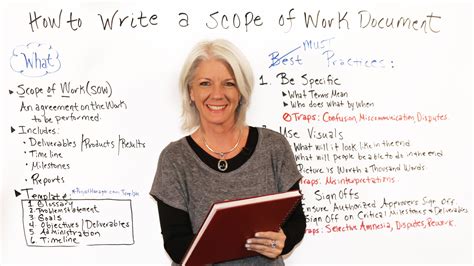 How to Write a Scope of Work Document
What
Scope of Work (SOW)
An agreement on the Work
to be performed.
Includes:
Deliverables/Products/Results
Timeline
Milestones
Reports
Template:
ProjectManager.com
1 Glossary
2 Problem Statement
3 Goals
4 Objectives/Deliverables
5 Administration
6 Timeline
MUST
Best Practices:
1. Be Specific
What Terms Mean
Who does what by When
Traps: Confusion, Miscommunication, Disputes.
Use Visuals
What will it look like in the end
What will people be able to do in the end
Picture is Worth a Thousand Words
Traps: Misinterpretations.
Sign Offs
Ensure Authorized Approvers Sign off
Sign Off on Critical Milestones & Deliverables
Traps: Selective Amnesia, Disputes, Rework.